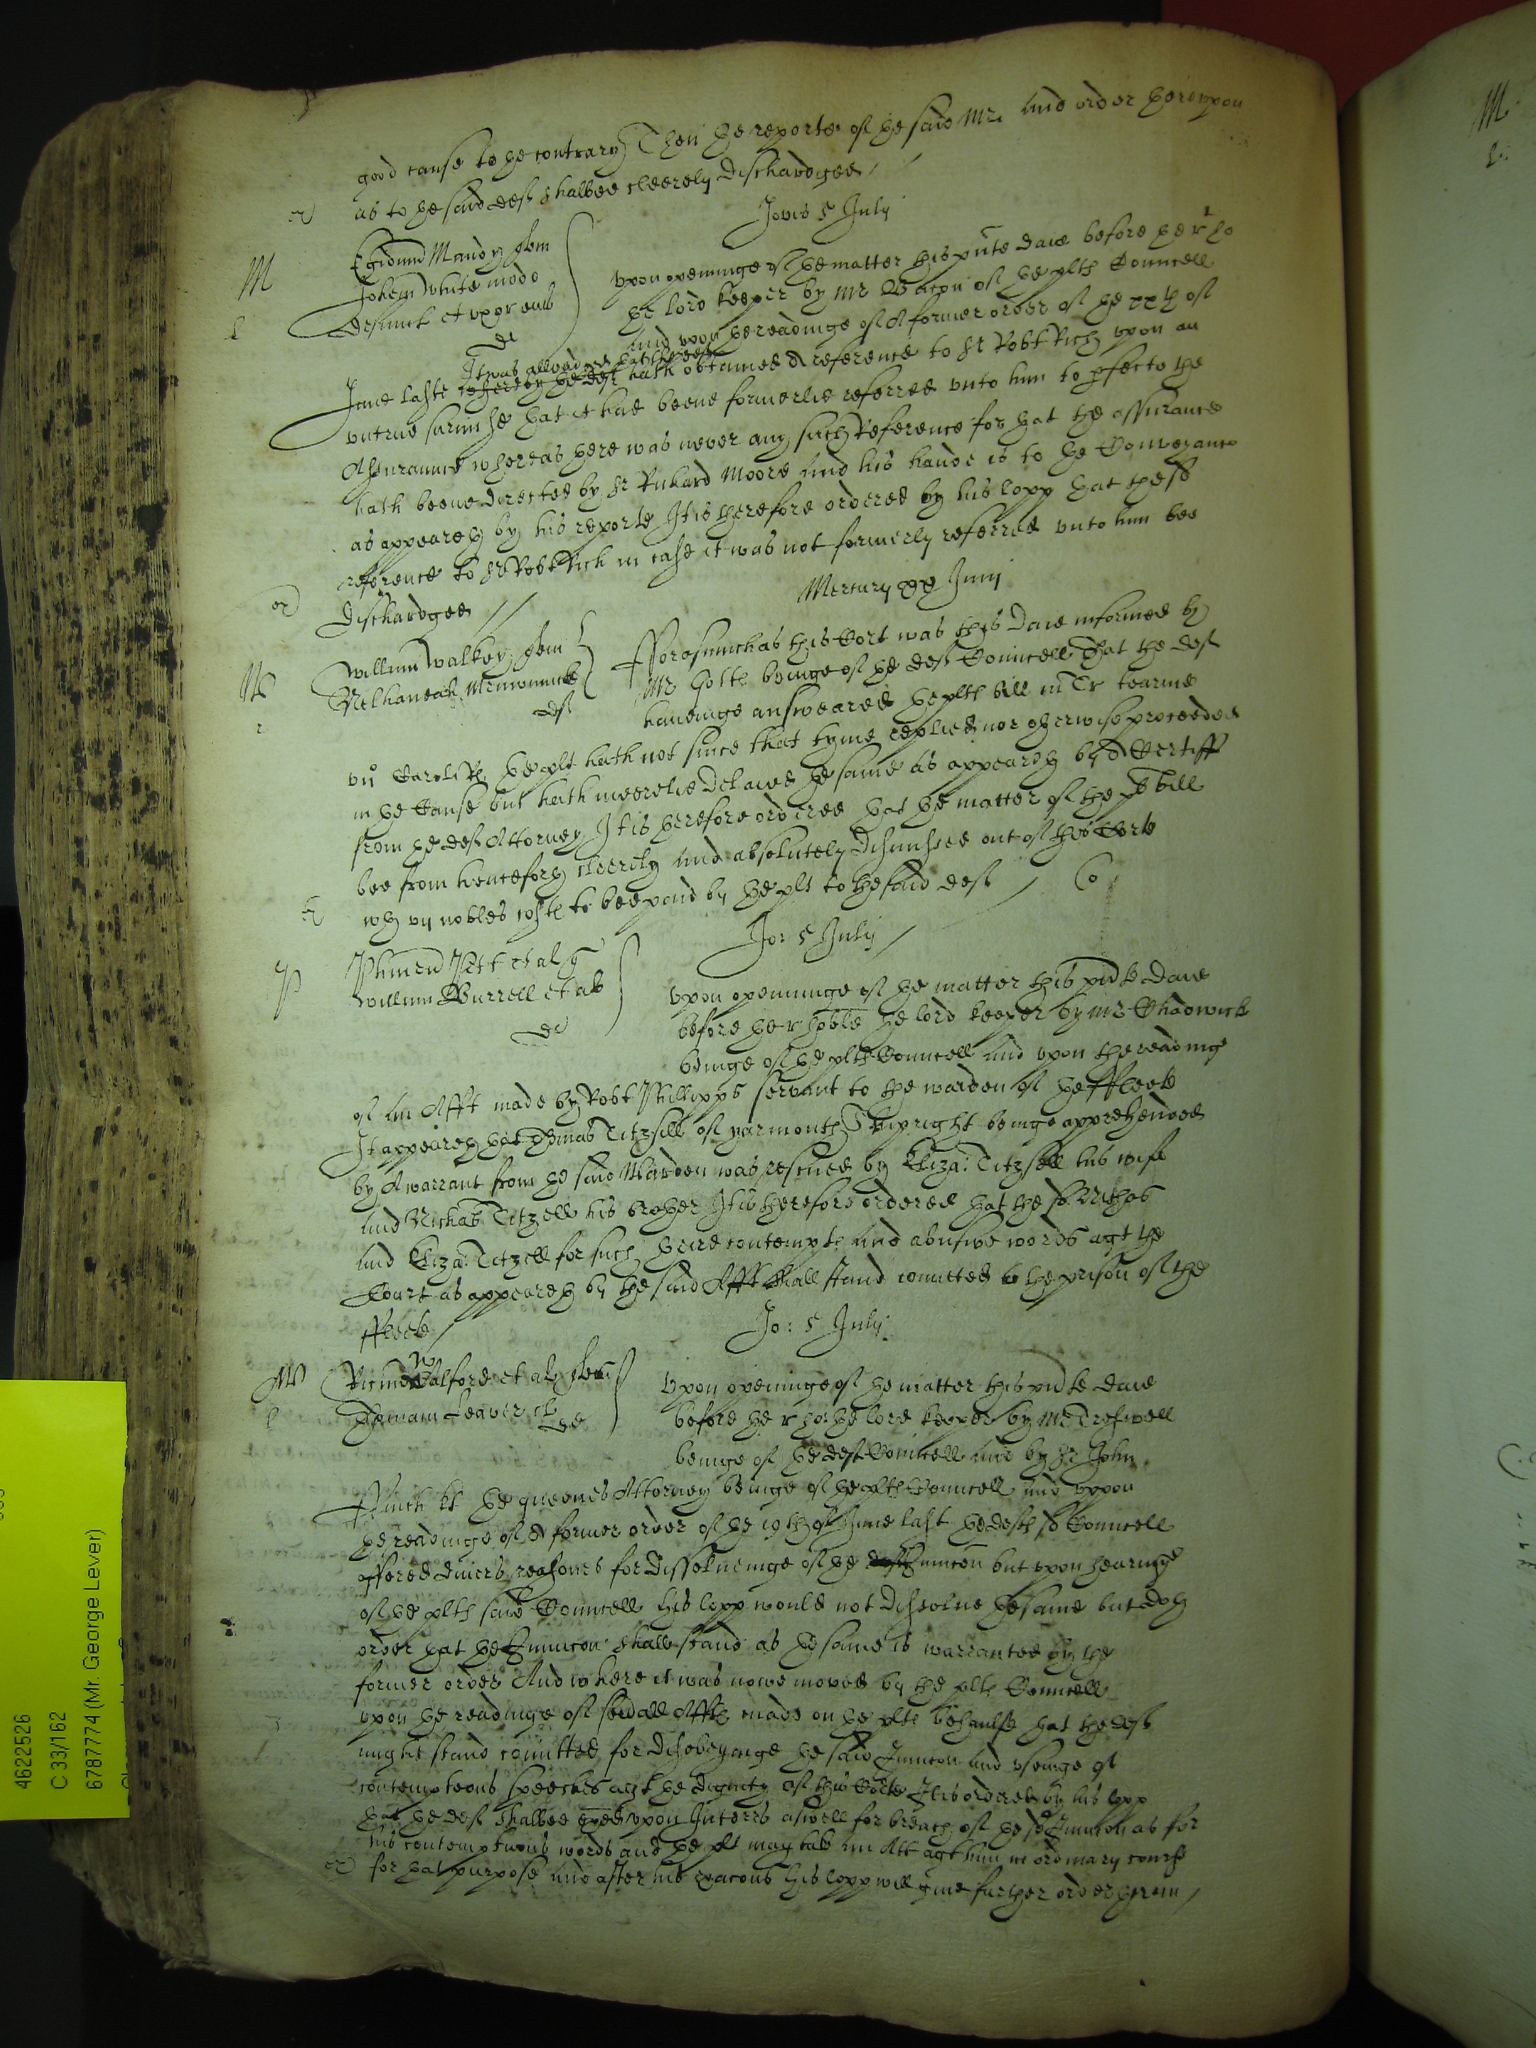 good cause to the contrary Then the reporte of the said Mr. and order thereupon
as to the said deft shalbee cleerely dischardged
Jovis 5 July
M
Egidium Mandy
Johem White modo
defunct et
upon openinge of the matter this pnte daie before the r ho
the lord keeper by Mr Bacon of the plts Councell
and upon the readinge of A former order of the xxth of
It was alleadged that the deft
June laste whereby the deft hath obtained A reference to Sr Robt Rich upon an
untrue surmise that it had beene formerlie referred unto him to pfecte the
Assurannce whereas there was never any such Reference for that the assurance
hath beene directed by Sr Richard Moore and his hande is to the Conveyance
as appeareth by his reporte It is therefore ordered by his lopp that the sd
reference to Sr Robt Rich in case it was not formerly referred unto him bee
dischardged
Mercury xx Junij
Willim Walkey
Nethaneah
deft
Fforasmuch as this Cort was this daie informed by
Mr beinge of the defts Councell That the deft
haveinge answeared the plts bill in Tr tearme
Caroli R. the plt hath not since that tyme replied nor otherwise proceeded
in the Cause but hath meerelie delaied the same as appeareth by A Certiff
from the defts Attorney It is therefore ordered that the matter of the pl bill
bee from henceforth cleerely and absolutely dismissed out of this Corte
wth vij nobles costs to bee paid by the plt to the said deft
Jo: 5 July
P
Phinead Pett et al
Willim Burrell et al
de
upon openninge of the matter this pnte daie
before the r hoble the lord keeper by Mr Chadwick
beinge of the plts Councell and upon the readinge
of an Afft made by Robt Phillipps servant to the warden of the ffleete
It appeareth that Thomas Titzsill of yarmouth Shipwright beinge apprehended
by A warrant from the said Warden was rescued by Eliza: Titzsell his wife
and Nichas Titzell his brother It is therefore ordered that the sd Nichas
and Eliza: Titzell for such their contempte and abusive words agt the
Court as appeareth by the said Afft shall stand comitted to the prison of the
ffleete
Jo: 5 July
W
Walford et al
Leaver
de
Upon openinge of the matter this pnte daie
before the r ho the lord keeper by Mr Treswell
beinge of the defts Councell and by Sr John
Finch kt the queenes Attorney beinge of the plts Councell and uppon
the readinge of A former order of the 19th of June last the defts sd Councell
offered divers reasones for dissolveinge of the Iniuncon but upon hearinge
of the plts said Councell his lopp would not dissolve the same but doth
order that the Iniuncon shall stand as the same is warranted by the
former order And where it was nowe moved by the plts Councell
upon the readinge of severall Affts made on the plts behaulfe that the deft
might stand comitted for disobeyinge the said Iniuncon and useinge of
contemptuous speeches agt the dignity of this Corte It is ordered by his lopp
that the deft shalbee exaed upon Interrs aswell for breach of the sd Iniuncon as for
his contemptuous words and the plt may take an Att agt him in ordinary course
for that purpose and after his exacons his lopp will give further order therein
4622526
C 33/162
6787774 (Mr. George Lever)